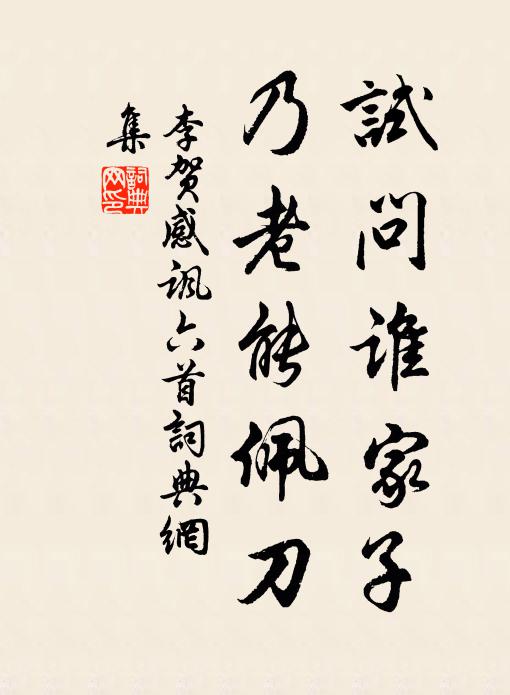 試問誰家子
乃老能佩刀
李賀感諷六首詞典網
集
詞典
网印